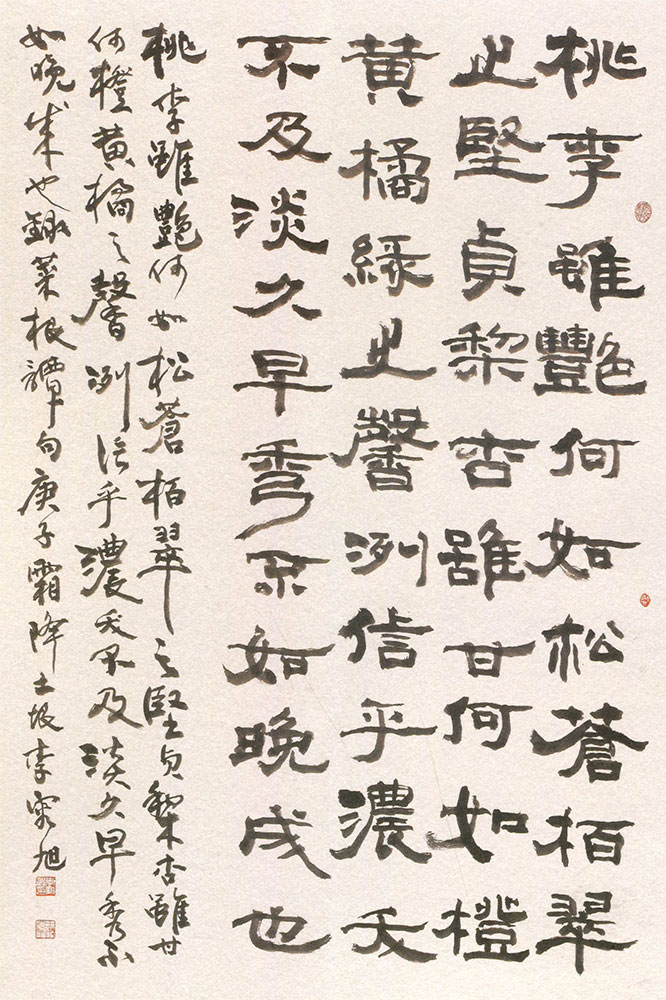 桃李雖艷何如松蒼栢翠
之堅貞棃杏雖甘何如橙
黄橘緑之馨洌信乎濃夭
不及淡久早秀不如晚成也
桃李雖艷何如松蒼栢翠之堅貞棃杏雖甘
何橙黄橘之馨洌信乎濃夭不及淡久早秀不
如晚成也録菜根譚句庚子霜降土坡李宗旭